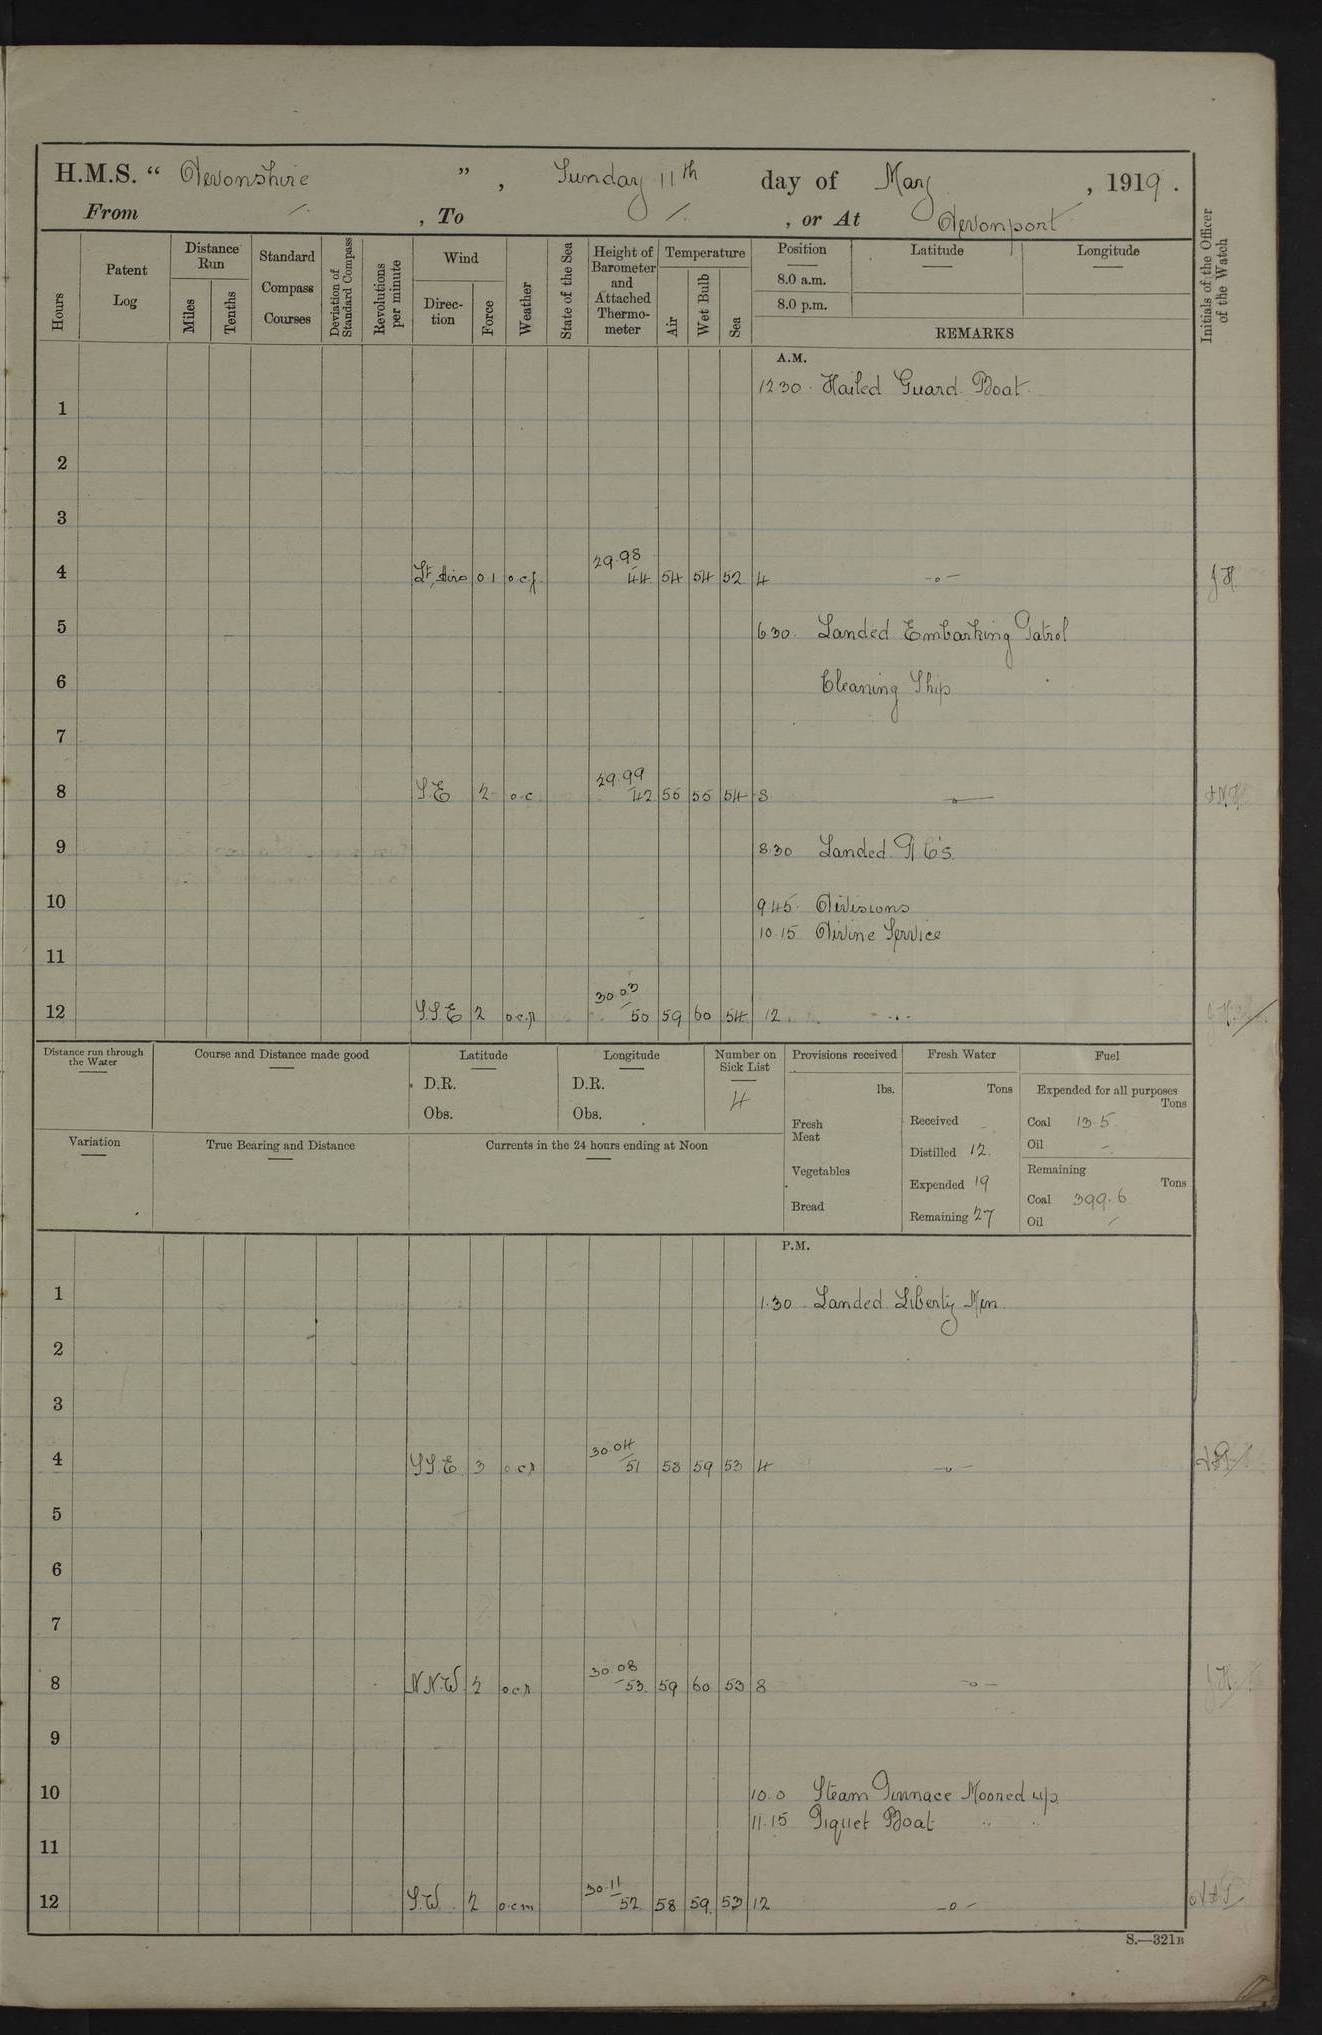 H.M.S. “ Devonshire ” , Sunday 11th day of May , 1919 .
From /. , To /. , or At Devonport
Hours
Patent Log
Distance Run
Miles
Tenths
Standard Compass Courses
Deviation of Standard Compass
Revolutions per minute
Wind
Direc-tion
Force
Weather
State of the Sea
Height of Barometer and Attached Thermo-meter
Temperature
Air
Wet Bulb
Sea
Position
Latitude
Longitude
8.0 a.m.
8.0 p.m.
REMARKS
Initials of the Officer of the Watch
A.M.
12.30 Hailed Guard Boat
1
2
3
4 Lt. Airs 0.1 o.c.f. 29.98 44 54 54 52 4 -o- J.H.
5 6.30. Landed Embarking Patrol
6 Cleaning Ship
7
8 S.E 2 o.c 29.99 42 56 56 54 8 -o-
9 8.30 Landed R.C's.
10 9.45. Divisions
10.15 Divine Service
11
12 S.S.E 2 o.c.p. 30.03 50 59 60 54 12
Distance run through the Water
Course and Distance made good
Latitude
D.R.
Obs.
Longitude
D.R.
Obs.
Number on Sick List
4
Provisions received
lbs.
Fresh Meat
Vegetables
Bread
Fresh Water
Tons
Received -
Distilled 12.
Expended 19
Remaining 27
Fuel
Expended for all purposes
Tons
Coal 13.5
Oil -
Remaining
Tons
Coal 399.6
Oil /
Variation
True Bearing and Distance
Currents in the 24 hours ending at Noon
P.M.
1 1.30 Landed Liberty Men
2
3
4 S.S.E. 3 o.c.r 30.04 51 58 59 53 4 -o-
5
6
7
8 N.N.W. 2 o.c.r 30.08 53 59 60 53 8 -o- J.H.
9
10 10.0 Steam Pinnace Moored up.
11.15 Piquet Boat " "
11
12 S.W. 2 o.c.m 30.11 52 58 59 53 12 -o-
S.—321B